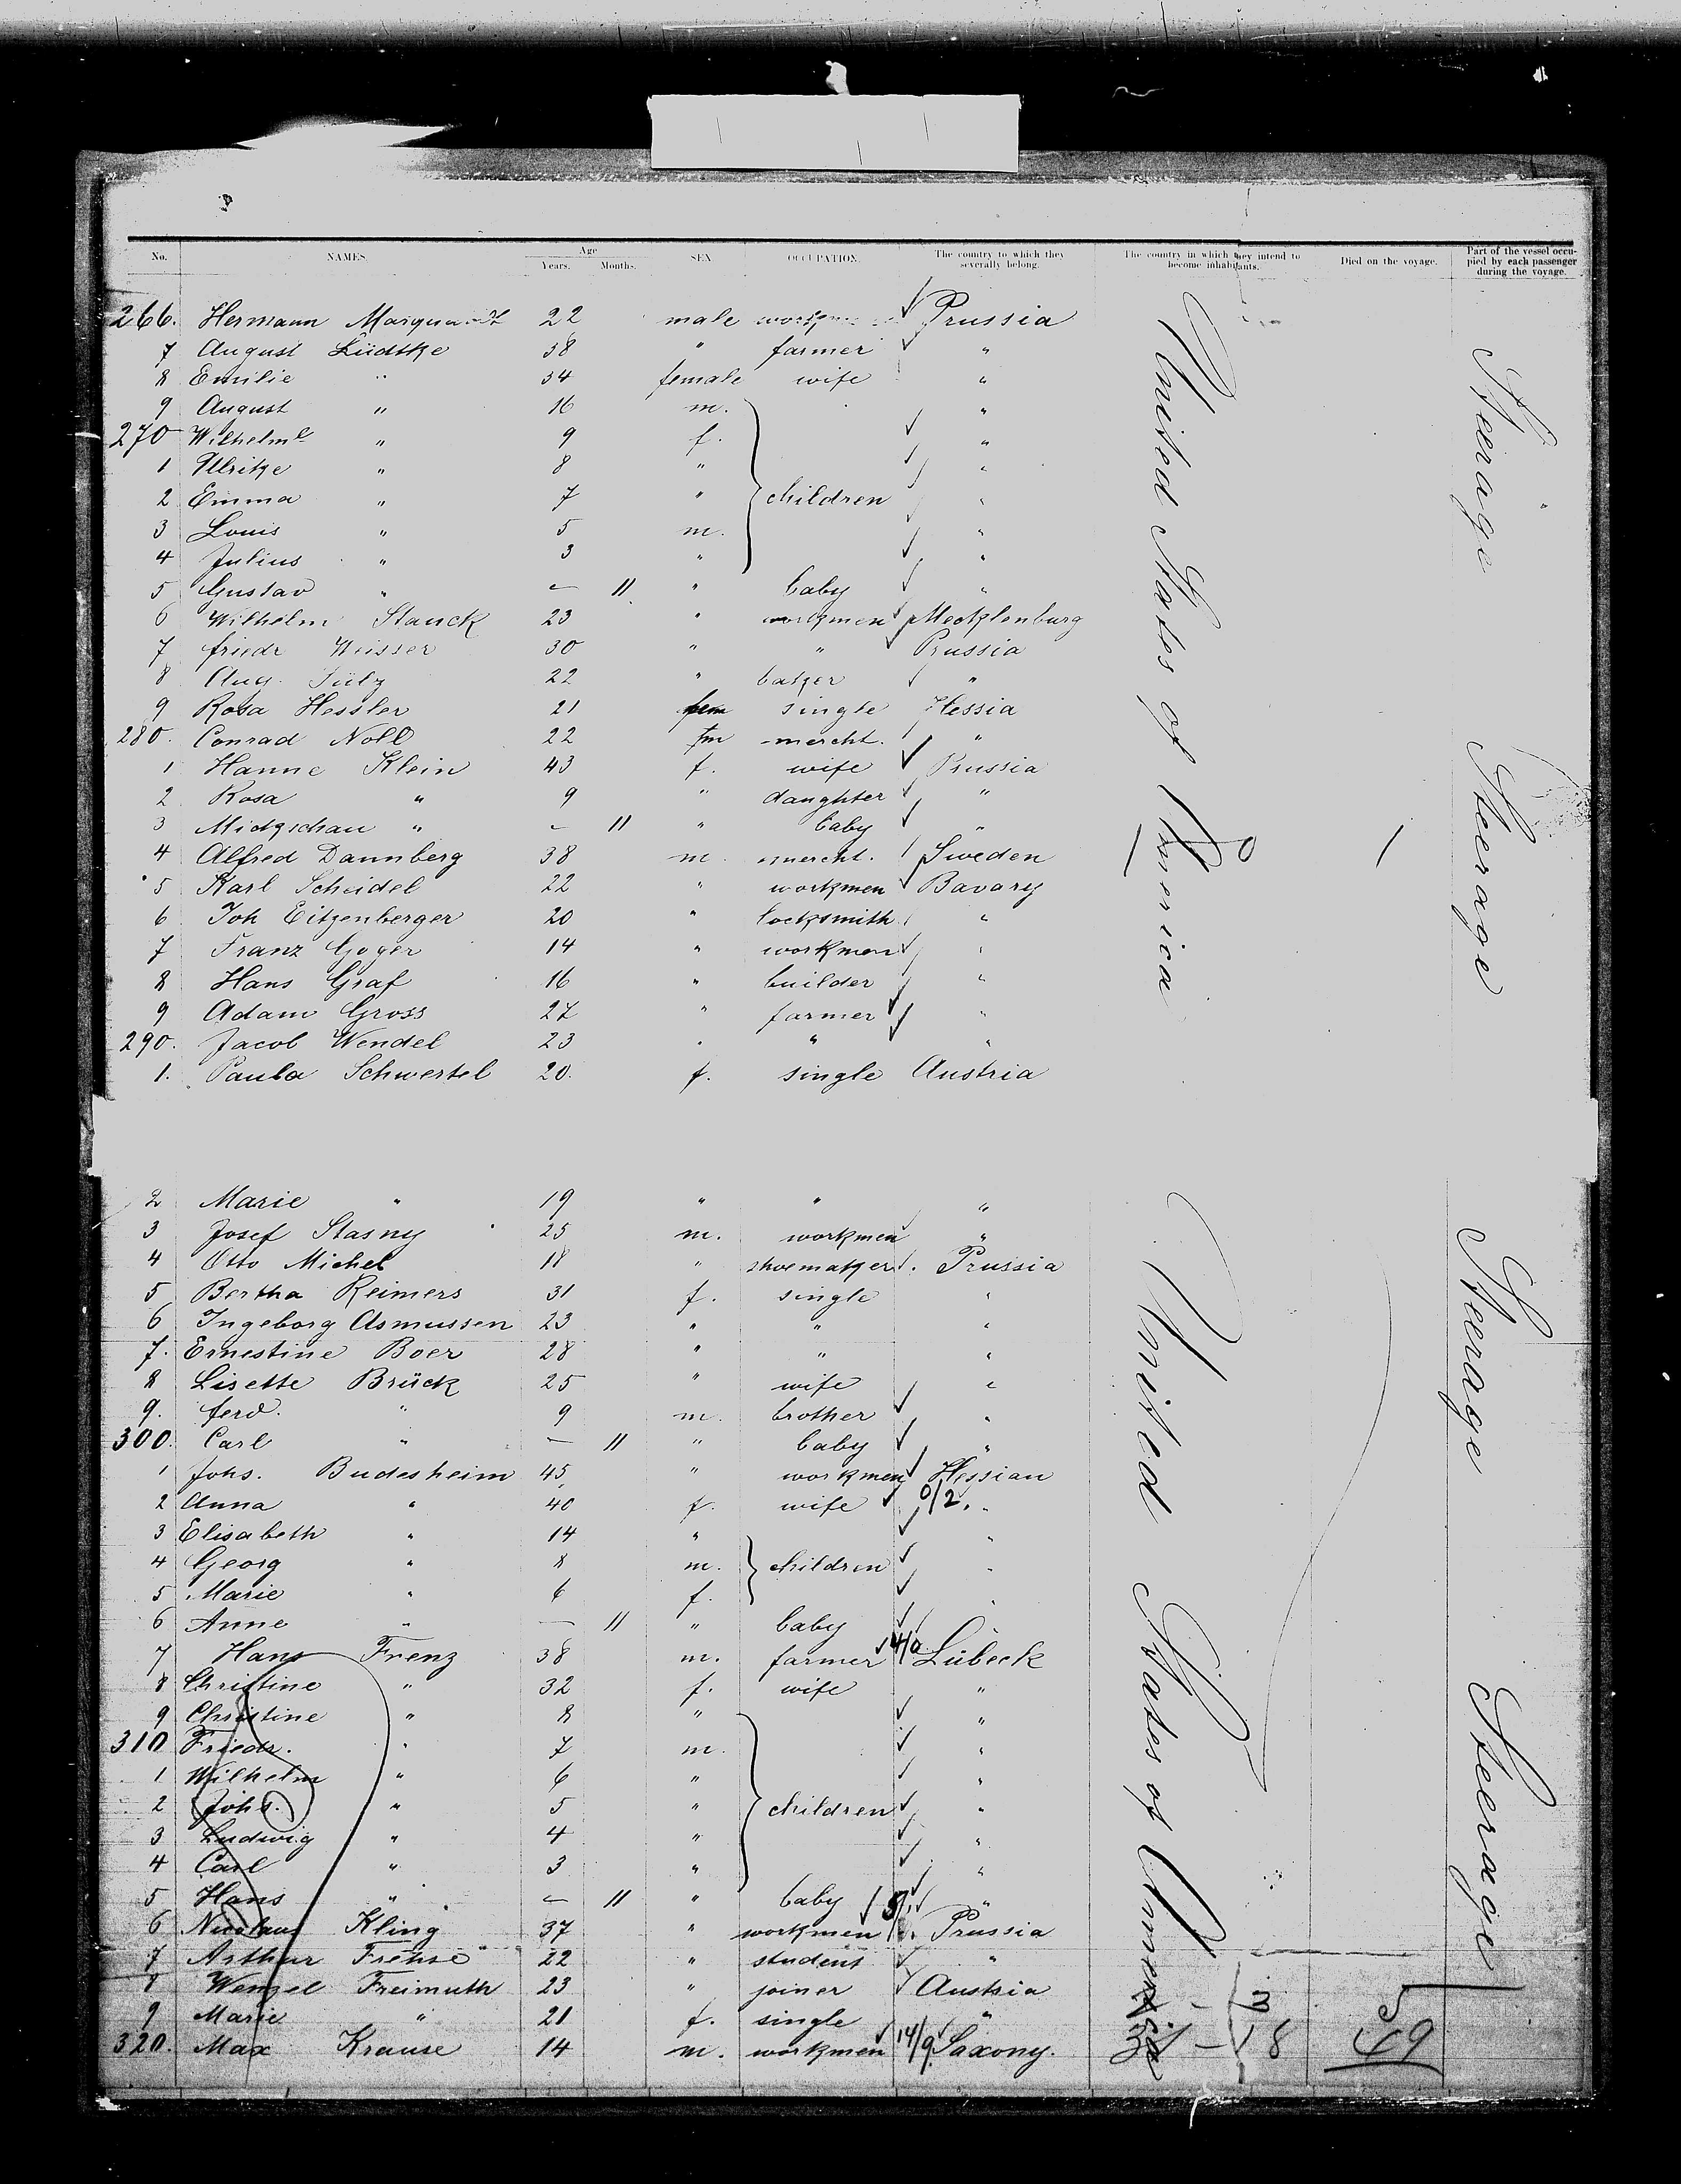 No. NAMES Age Years. Months. SEX OCCUPATION. The country to which they severally belong. The country in which they intend to become inhabitants. Died on the voyage. Part of the vessel occupied by each passenger during the voyage.
266. Hermann Marquardt 22 male workmen Prussia
7 August Lüdtke 38 " farmer "
8 Emilie " 34 female wife "
9 August " 16 m. "
270 Wilhelme " 9 f. "
1 Ulrike " 8 " "
2 Emma " 7 " children "
3 Louis " 5 m. "
4 Julius " 3 " "
5 Gustav " — 11 " baby "
6 Wilhelm Stauck 23 " workmen Mecklenburg
7 friedr Weisser 30 " " Prussia
8 Aug. Jülz 22 " baker "
9 Rosa Hessler 21 fem single Hessia
280. Conrad Noll 22 m mercht. "
1 Hanne Klein 43 f. wife Prussia
2 Rosa " 9 " daughter "
3 Midgschau " — 11 " baby "
4 Alfred Dannberg 38 m mercht. Sweden
5 Karl Scheidel 22 " workmen Bavary
6 Joh Eitzenberger 20 " locksmith "
7 Franz Goger 14 " workmen "
8 Hans Graf 16 " builder "
9 Adam Gross 27 " farmer "
290. Jacob Wendel 23 " " "
1. Paula Schwertel 20. f. single Austria
United States of America
Steerage Steerage
2 Marie " 19 " " "
3 Josef Stasny 25 m. workmen "
4 Otto Michel 18 " shoemaker Prussia
5 Bertha Reimers 31 f. single "
6 Ingeborg Asmussen 23 " " "
7. Ernestine Boer 28 " " "
8 Lisette Brück 25 " wife "
9. ferd. " 9 m. brother "
300. Carl " — 11 " baby "
1 Johs. Budesheim 45 " workmen Hessian
2 Anna " 40 f. wife 0/2. "
3 Elisabeth " 14 " "
4 Georg " 8 m. children "
5 Marie " 6 f. "
6 Anne " — 11 " baby
7 Hans Frenz 38 m. farmer 4/0 Lübeck
8 Christine " 32 f. wife "
9 Christine " 8 " "
310 Friedr. " 7 m. "
1 Wilhelm " 6 " "
2 Johs. " 5 " children "
3 Ludwig " 4 " "
4 Carl " 3 " "
5 Hans " — 11 " baby "
6 Nicolaus Kling 37 " workmen Prussia
7 Arthur Frehse 22 " student "
8 Wenzel Freimuth 23 " joiner Austria
9 Marie " 21 f. single "
320. Max Krause 14 m. workmen 14/9 Saxony.
United States of America
Steerage Steerage